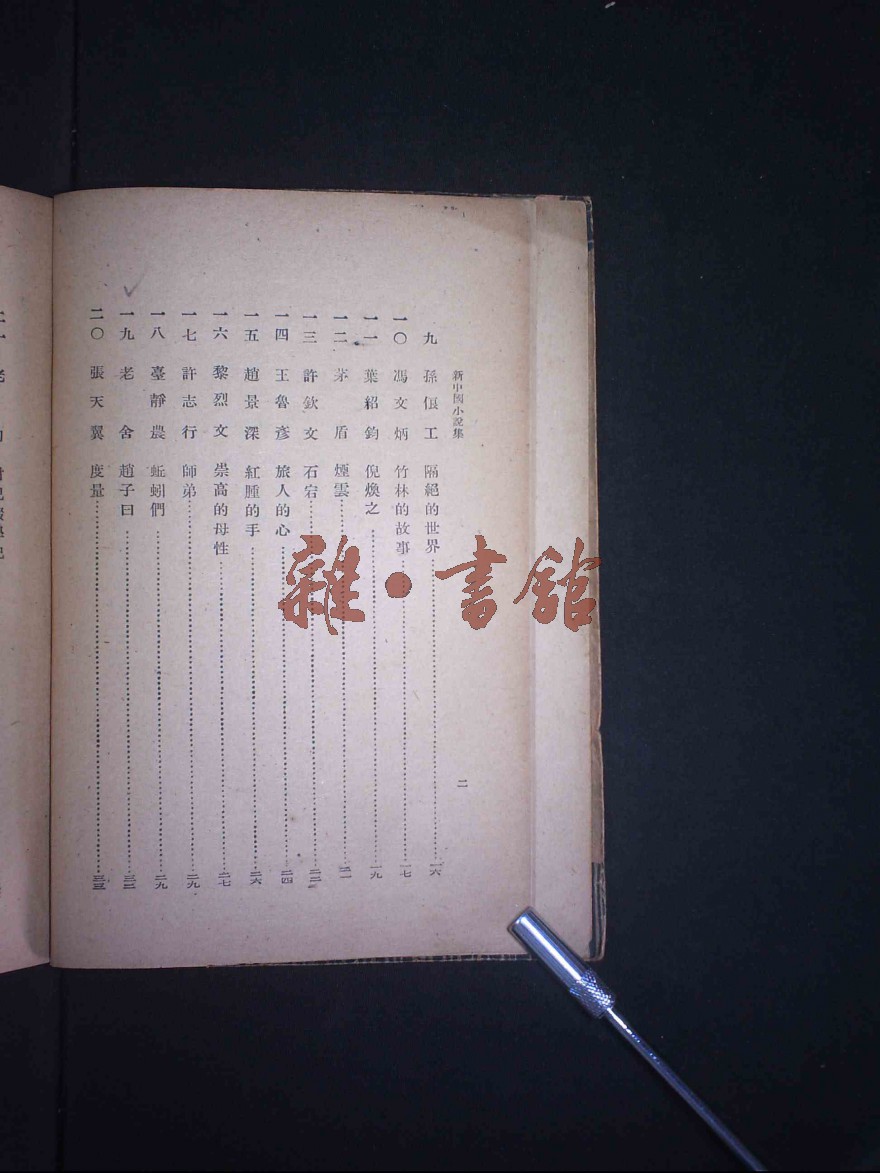 新中國小說集
九 孫俍工 隔絕的世界 一六
一〇 馮文炳 竹林的故事 一七
一一 葉紹鈞 倪煥之 一九
一二 茅盾 煙雲 二一
一三 許欽文 石宕 二二
一四 王魯彥 旅人的心 二四
一五 趙景深 紅腫的手 二六
一六 黎烈文 崇高的母性 二七
一七 許志行 師弟 二九
一八 臺靜農 蚯蚓們 二九
一九 老舍 趙子曰 三二
二〇 張天翼 度量 三三
二
雜·書館